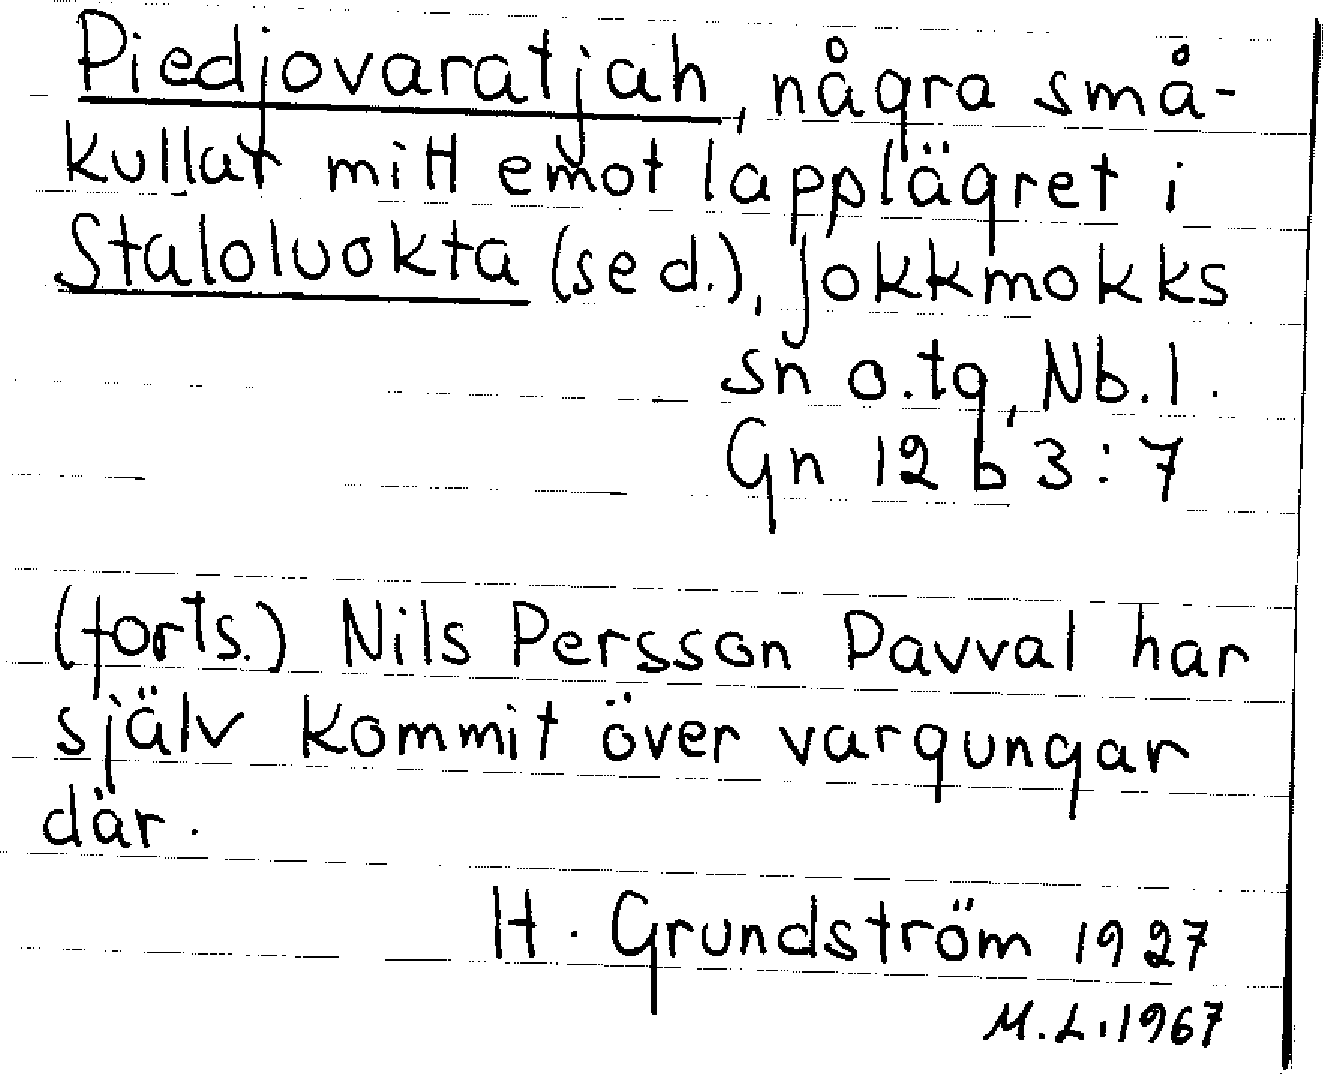 Piedjovaratjah, några små-
kullar mitt emot lapplägret i
Staloluokta (se d.), Jokkmokks
sn o. tg, Nb. l.
Gn 12 b 3:7
(forts.) Nils Persson Pavval har
själv kommit över vargungar
där.
H. Grundström 1927
M.L. 1967